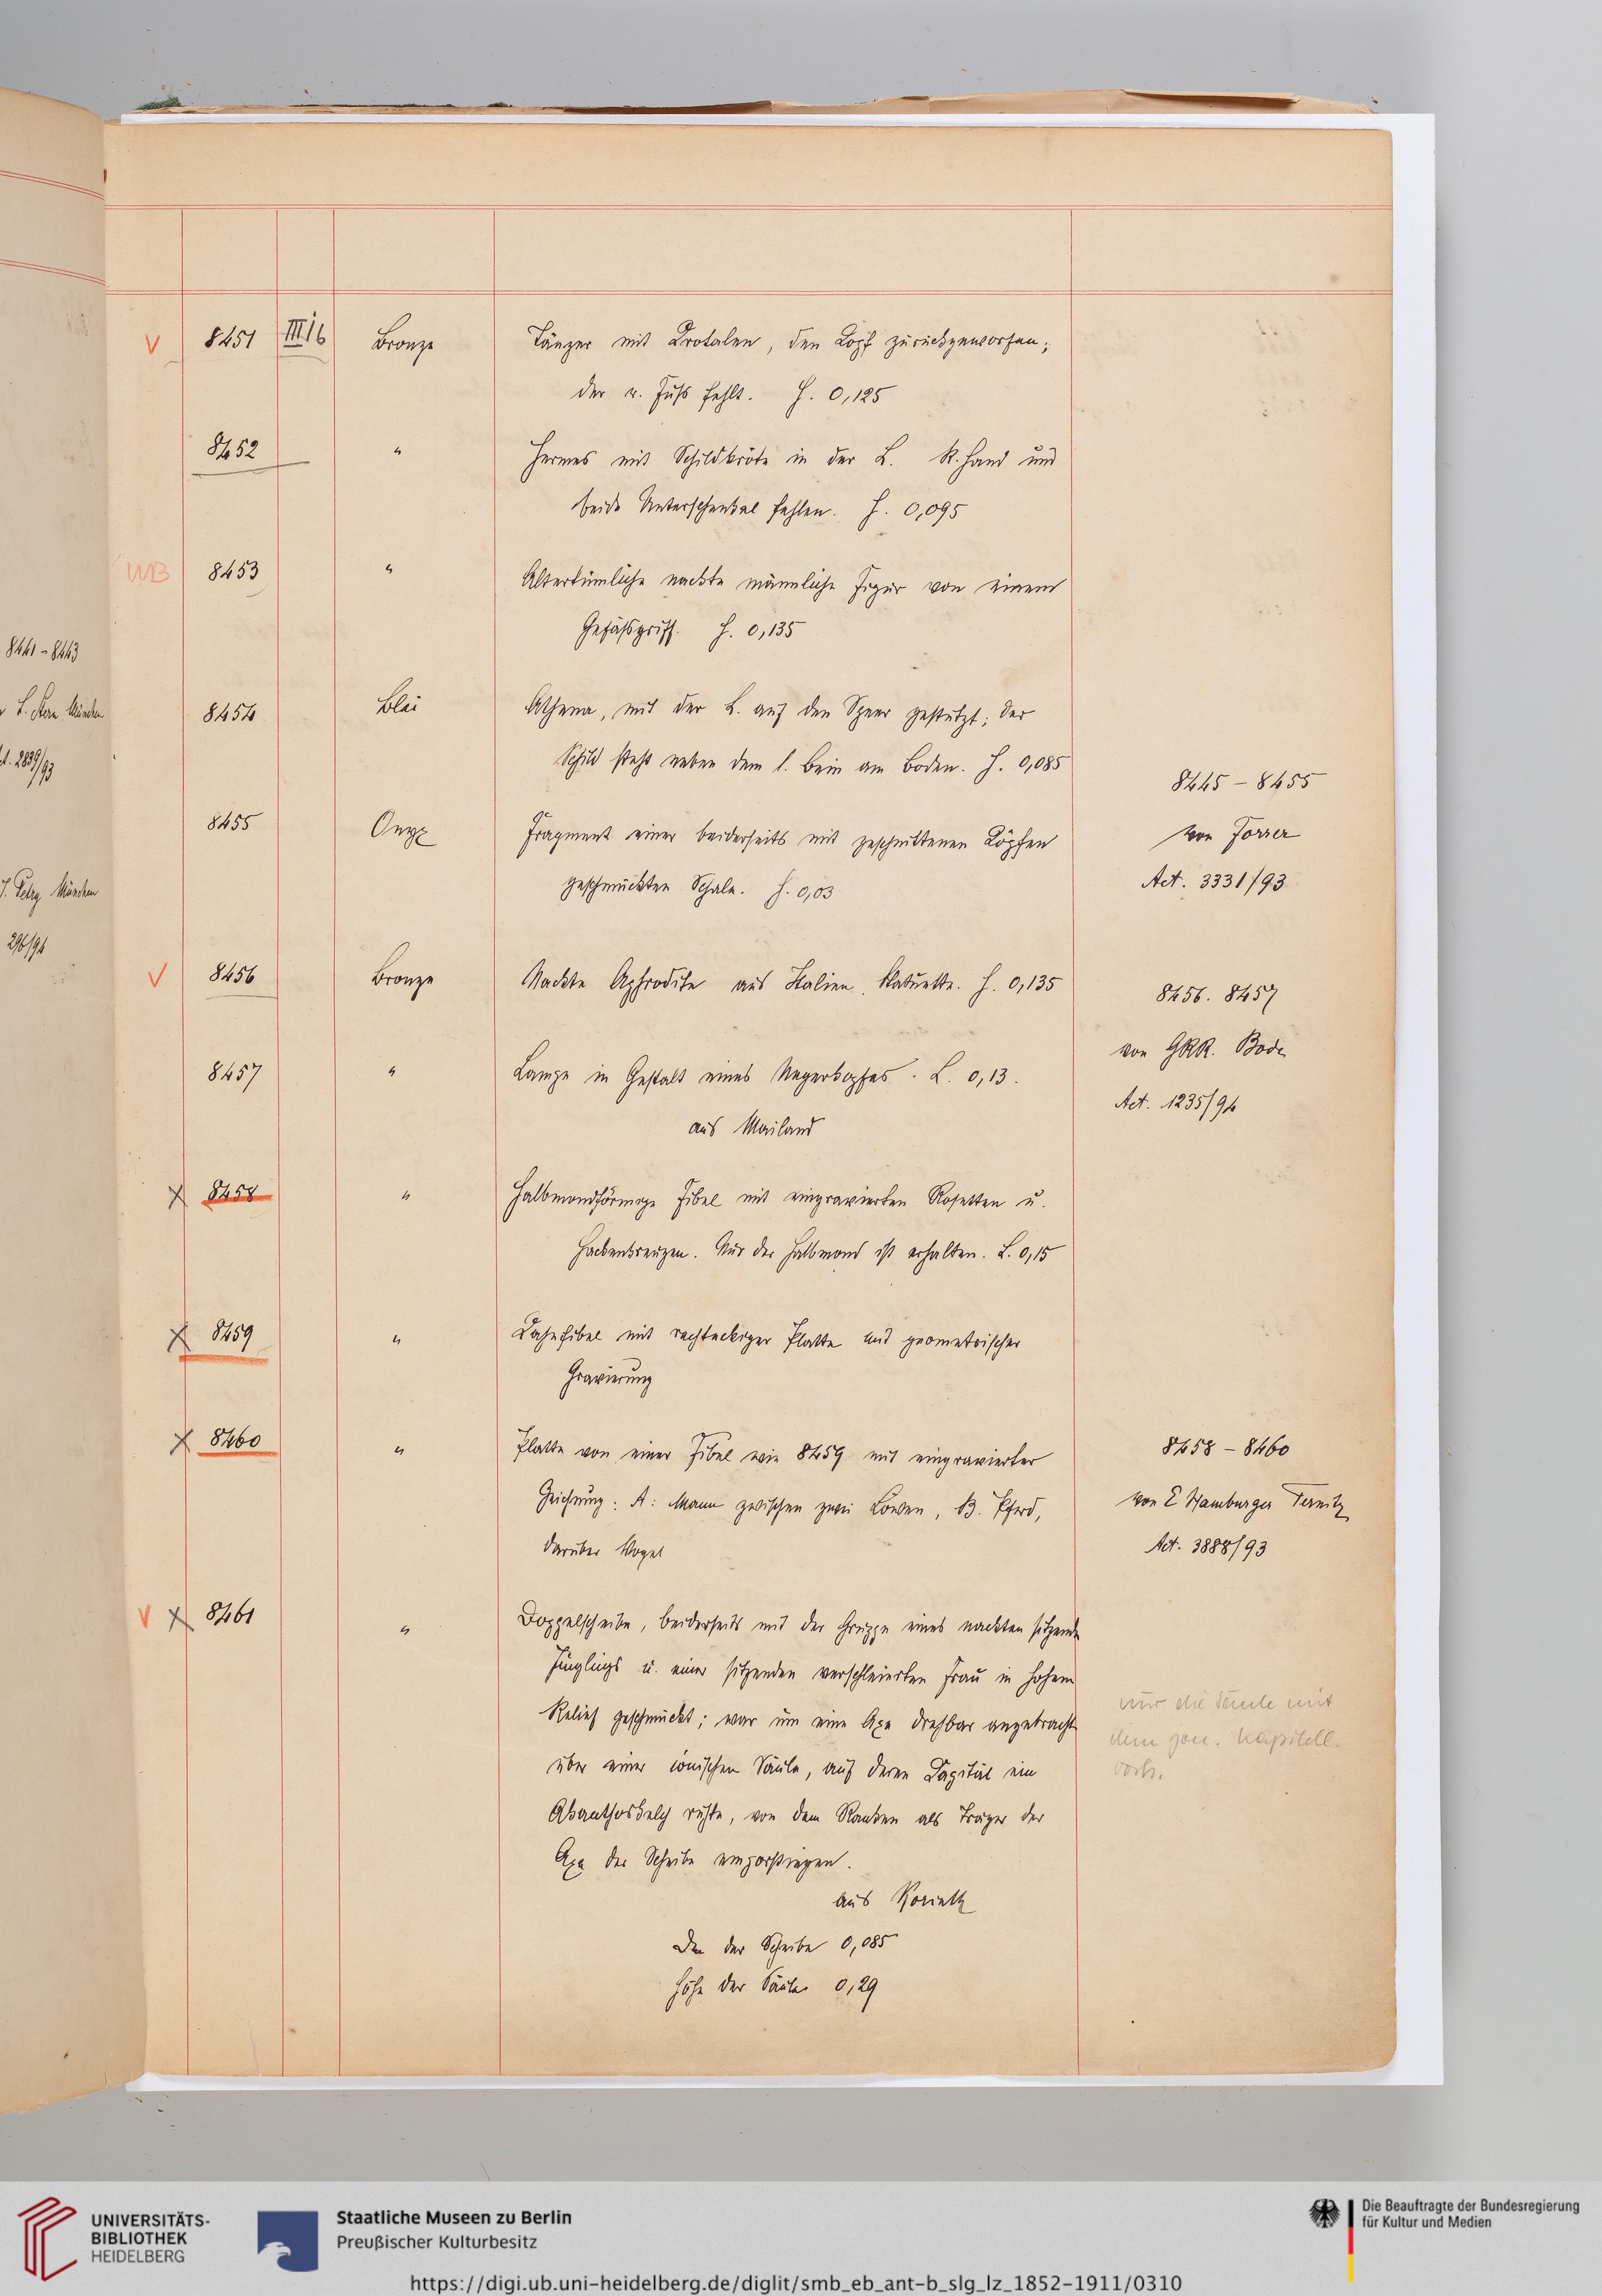 V 8451 III i 6 Bronze Tänzer mit Krotalen, den Kopf zurückgeworfen;
der r. Fuß fehlt. H. 0,125
8452 " Hermes mit Schildkröte in der L. R. Hand und
beide Unterschenkel fehlen. H. 0,095
WB 8453 " Altertümliche nackte männliche Figur von einem
Gefäßgriff. H. 0,135
8454 Blei Athena, mit der L. auf den Speer gestützt; der
Schild steht neben dem l. Bein am Boden. H. 0,085
8455 Onyx Fragment einer beiderseits mit geschnittenen Köpfen
geschmückten Schale. H. 0,03
8445 – 8455
von Forrer
Act. 3331/93
V 8456 Bronze Nackte Aphrodite aus Italien. Statuette. H. 0,135
8457 " Lampe in Gestalt eines Negerkopfes. L. 0,13.
aus Mailand
8456. 8457
von GRR. Bode
Act. 1235/94
X 8458 " Halbmondförmige Fibel mit eingravierten Rosetten u.
Hackenkreuzen. Nur der Halbmond ist erhalten. L. 0,15
X 8459 " Kahnfibel mit rechteckiger Platte mit geometrischer
Gravierung
X 8460 " Platte von einer Fibel wie 8459 mit eingravierter
Zeichnung: A: Mann zwischen zwei Löwen, B. Pferd,
darüber Vogel
8458 – 8460
von E Hamburger Ternitz
Act. 3888/93
V X 8461 " Doppelscheibe, beiderseits mit der Gruppe eines nackten sitzenden
Jünglings u. einer sitzenden verschleierten Frau in hohem
Relief geschmückt; war um eine Axe drehbar angebracht
über einer ionischen Säule, auf deren Kapitäl ein
Akanthoskelch ruhte, von dem Ranken als Träger der
Axe der Scheibe emporstiegen.
aus Korinth
Dm der Scheibe 0,085
Höhe der Säule 0,29
nur die Säule mit
dem jon. Kapitell.
vorh.
8441 – 8443
L. Stern München
2839/93
Petry München
296/94
UNIVERSITÄTS-
BIBLIOTHEK
HEIDELBERG
Staatliche Museen zu Berlin
Preußischer Kulturbesitz
Die Beauftragte der Bundesregierung
für Kultur und Medien
https://digi.ub.uni-heidelberg.de/diglit/smb_eb_ant-b_slg_lz_1852-1911/0310